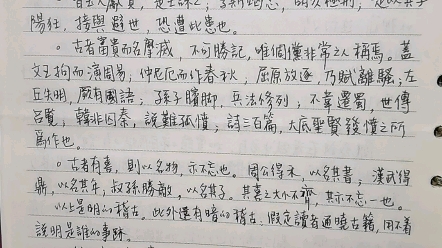 陽狂，接輿避世，恐遭此患也。
。古者富貴而名摩滅，不可勝記，唯倜儻非常之人稱焉。蓋
文王拘而演周易；仲尼厄而作春秋；屈原放逐，乃賦離騷；左
丘失明，厥有國語；孫子臏腳，兵法修列；不韋遷蜀，世傳
呂覽；韓非囚秦，說難孤憤；詩三百篇，大底聖賢發憤之所
為作也。
。古者有喜，則以名物，示不忘也。周公得禾，以名其書；漢武得
鼎，以名其年，叔孫勝敵，以名其子。其喜之大小不齊，其示不忘一也。
以上是明的稽古。此外還有暗的稽古，假定讀者通曉古籍，用不着
說明是誰的事跡。